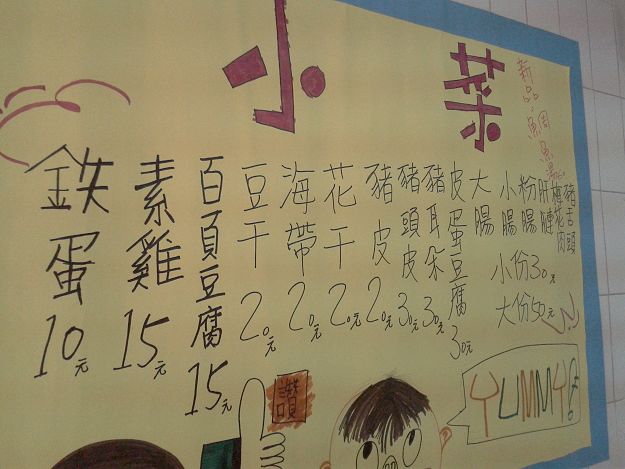 小菜
新品:鯛魚湯
鉄蛋10元
素雞15元
百頁豆腐15元
豆干20元
海帶20元
花干20元
豬皮20元
豬頭皮30元
豬耳朵30元
皮蛋豆腐30元
大腸
小腸
粉腸
肝腱
梅花肉
豬舌頭
小份30元
大份50元
讚
YUMMY!